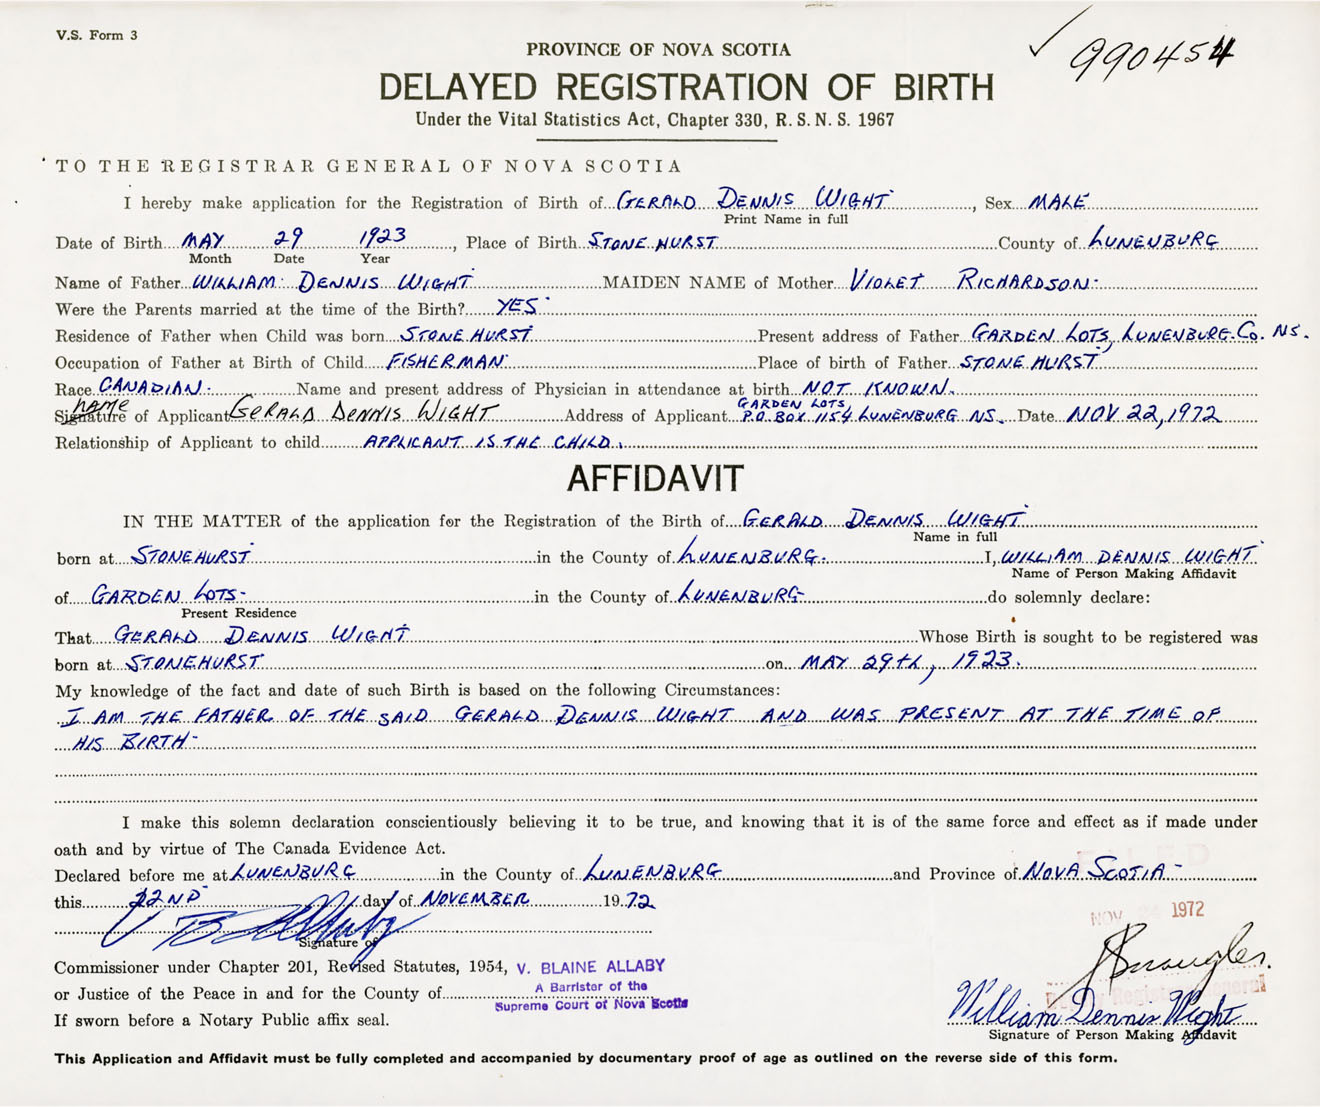 V.S. Form 3
990454
PROVINCE OF NOVA SCOTIA
DELAYED REGISTRATION OF BIRTH
Under the Vital Statistics Act, Chapter 330, R. S. N. S. 1967
TO THE REGISTRAR GENERAL OF NOVA SCOTIA
I hereby make application for the Registration of Birth of GERALD DENNIS WIGHT, Sex MALE
Print Name in full
Date of Birth MAY 29 1923, Place of Birth STONEHURST County of LUNENBURG
Month Date Year
Name of Father WILLIAM DENNIS WIGHT MAIDEN NAME of Mother VIOLET RICHARDSON
Were the Parents married at the time of the Birth? YES
Residence of Father when Child was born STONEHURST Present address of Father GARDEN LOTS, LUNENBURG. Co. NS.
Occupation of Father at Birth of Child FISHERMAN Place of birth of Father STONEHURST
Race CANADIAN. Name and present address of Physician in attendance at birth NOT KNOWN.
name
Signature of Applicant GERALD DENNIS WIGHT Address of Applicant GARDEN LOTS, P.O. BOX 1154 LUNENBURG NS. Date NOV 22, 1972
Relationship of Applicant to child APPLICANT IS THE CHILD.
AFFIDAVIT
IN THE MATTER of the application for the Registration of the Birth of GERALD DENNIS WIGHT
Name in full
born at STONEHURST in the County of LUNENBURG. I, WILLIAM DENNIS WIGHT
Name of Person Making Affidavit
of GARDEN LOTS- in the County of LUNENBURG do solemnly declare:
Present Residence
That GERALD DENNIS WIGHT Whose Birth is sought to be registered was
born at STONEHURST on MAY 29th, 1923.
My knowledge of the fact and date of such Birth is based on the following Circumstances:
I AM THE FATHER OF THE SAID GERALD DENNIS WIGHT AND WAS PRESENT AT THE TIME OF
HIS BIRTH-
I make this solemn declaration conscientiously believing it to be true, and knowing that it is of the same force and effect as if made under
oath and by virtue of The Canada Evidence Act.
FILED
Declared before me at LUNENBURG in the County of LUNENBURG and Province of NOVA SCOTIA-
this 22ND day of NOVEMBER 1972
NOV 24 1972
Signature of
Commissioner under Chapter 201, Revised Statutes, 1954, V. BLAINE ALLABY
or Justice of the Peace in and for the County of A Barrister of the
Supreme Court of Nova Scotia
Deputy Registrar General
William Dennis Wight
If sworn before a Notary Public affix seal.
Signature of Person Making Affidavit
This Application and Affidavit must be fully completed and accompanied by documentary proof of age as outlined on the reverse side of this form.